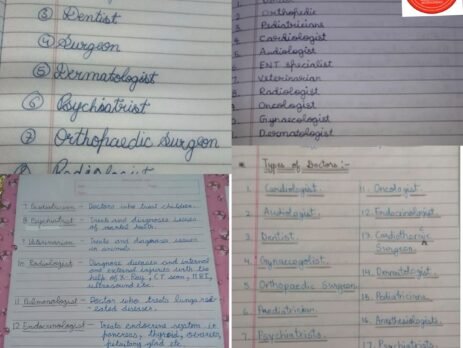 ③ Dentist
④ Surgeon
⑤ Dermatologist
⑥ Psychiatrist
⑦ Orthopaedic Surgeon
Radiologist
Orthopedic
3. Pediatricians
4. Cardiologist
6. Audiologist
ENT specialist
7. Veterinarian
8. Radiologist
Oncologist
Gynaecologist
Dermatologist
7. Doctors who treat children.
8. Psychiatrist - Treats and diagnose issues
of mental health.
9. Veterinarian - Treats and diagnose issues
in animals.
10. Radiologist - Diagnose diseases and internal
and external injuries with the
help of X-Ray, CT scan, MRI,
ultrasound etc.
11. Pulmonologist - Doctor who treats lungs
related diseases.
12. Endocrinologist - Treats endocrine system ie
pancreas, thyroid, ovaries,
pituitary gland etc.
* Types of Doctors :-
1. Cardiologist.
2. Audiologist.
3. Dentist.
4.
5. Orthopaedic Surgeon
6. Paediatrician
7. Psychiatrists
11. Oncologist.
12. Endocrinologist.
13. Cardiothoracic
Surgeon.
14. Dermatologist.
15. Pediatricians.
16. Anesthesiologists.
17. Psychiatrists